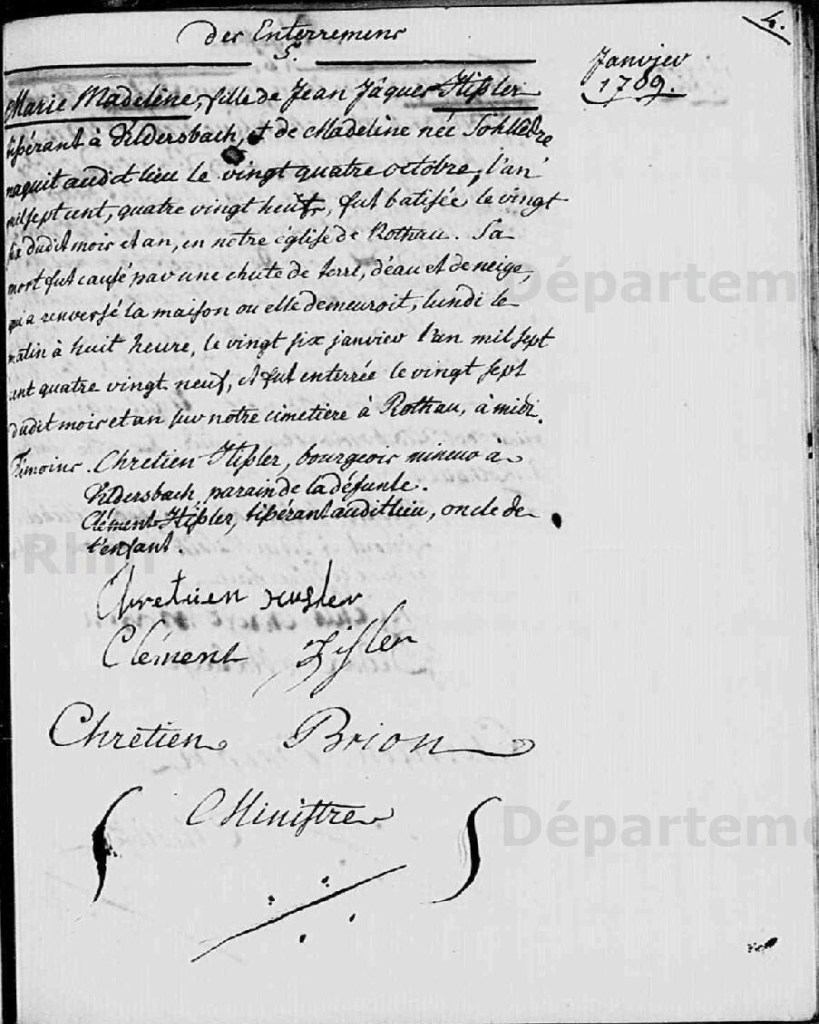 des Enterremens
4.
5.
Janvier
1789.
Marie Madeleine, fille de Jean Jâques Hißler
tißérant à Vildersbach, et de Madeleine née
naquit audit lieu le vingt quatre octobre, l'an
mil sept cent, quatre vingt huit, fut batisée le vingt
six dudit mois et an, en notre église de Rothau. Sa
mort fut causé par une chute de terre, d'eau et de neige,
qui a renversé la maison ou elle demeuroit, lundi le
matin à huit heure, le vingt six janvier l'an mil sept
cent quatre vingt neuf, et fut enterrée le vingt sept
dudit mois et an sur notre cimetiere à Rothau, à midi.
Témoins. Chretien Hißler, bourgeois mineur à
Vildersbach, parain de la défunte.
Clément Hißler, tißérant audit lieu, oncle de
l'enfant.
Chretien
Clément
Chretien Brion
Ministre
Départeme
Rhin
Départeme